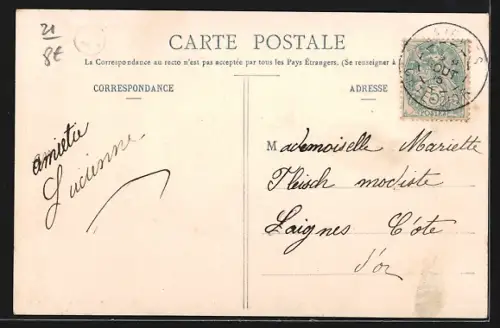 21
8€
CARTE POSTALE
La Correspondance au recto n'est pas acceptée par tous les Pays Étrangers. (Se renseigner à
CORRESPONDANCE
ADRESSE
amitié
Lucienne.
Mademoiselle Mariette
Fleisch modiste
Laignes Côte
d'or